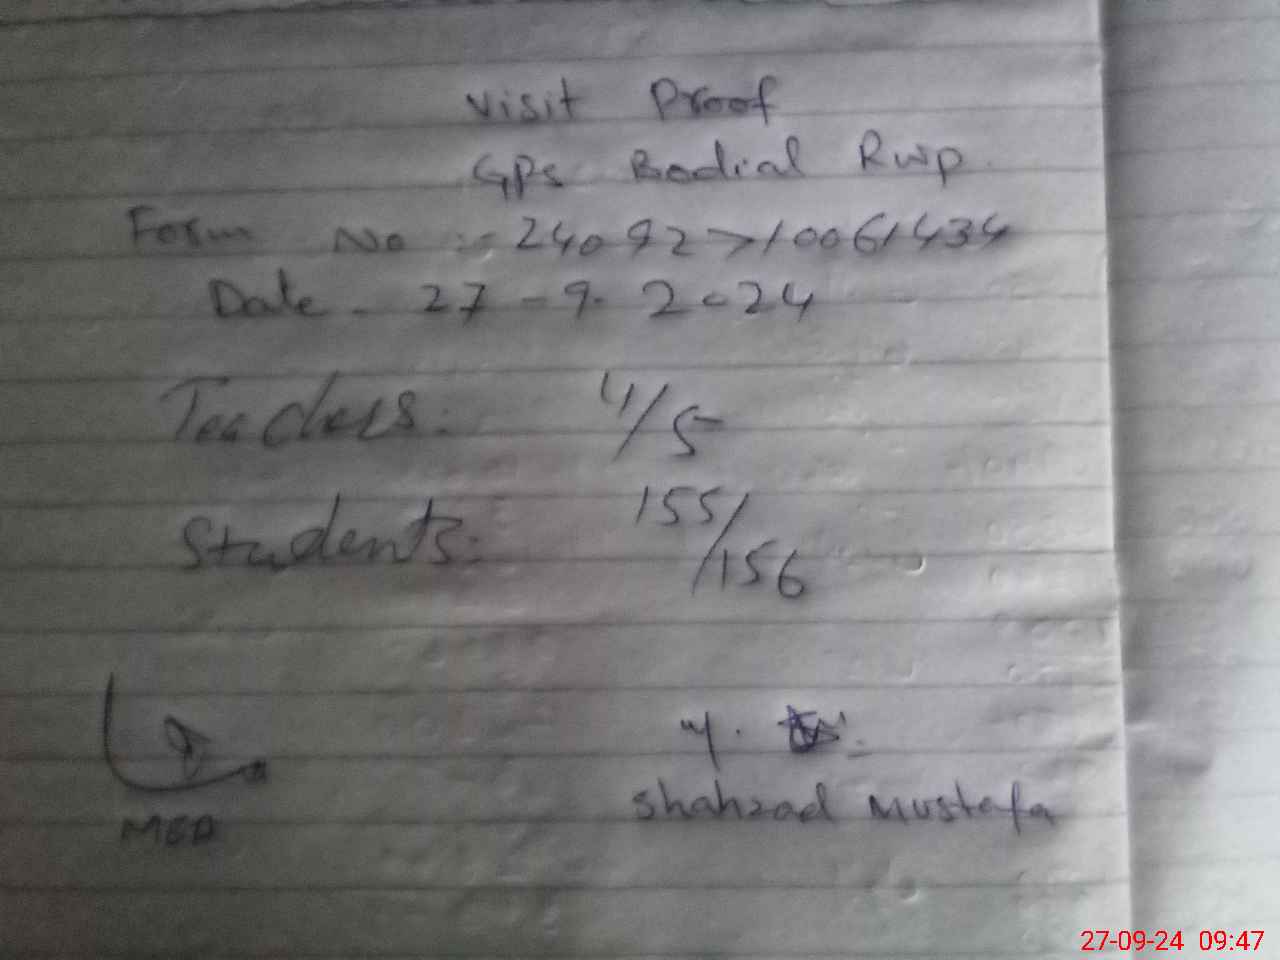 Visit Proof
GPS Bodial Rwp.
Form No :- 24092710061434
Date - 27-9-2024
Teachers: 4/5
Students: 155/156
MEO
Shahzad Mustafa
27-09-24 09:47